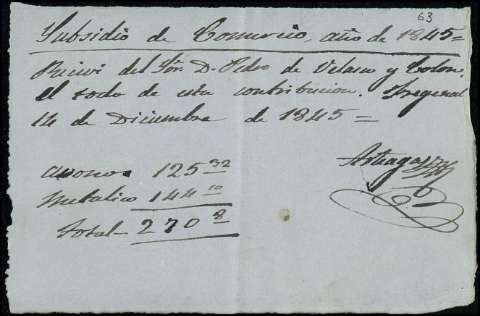 63
Subsidio de Comercio, año de 1845=
Recivi del Sor. D. Pedro de Velasco y Colon,
el todo de esta contribucion. Fregenal
14 de Diciembre de 1845=
avonos 125 32
Metalico 144 10
Total- 270 8
Arteaga